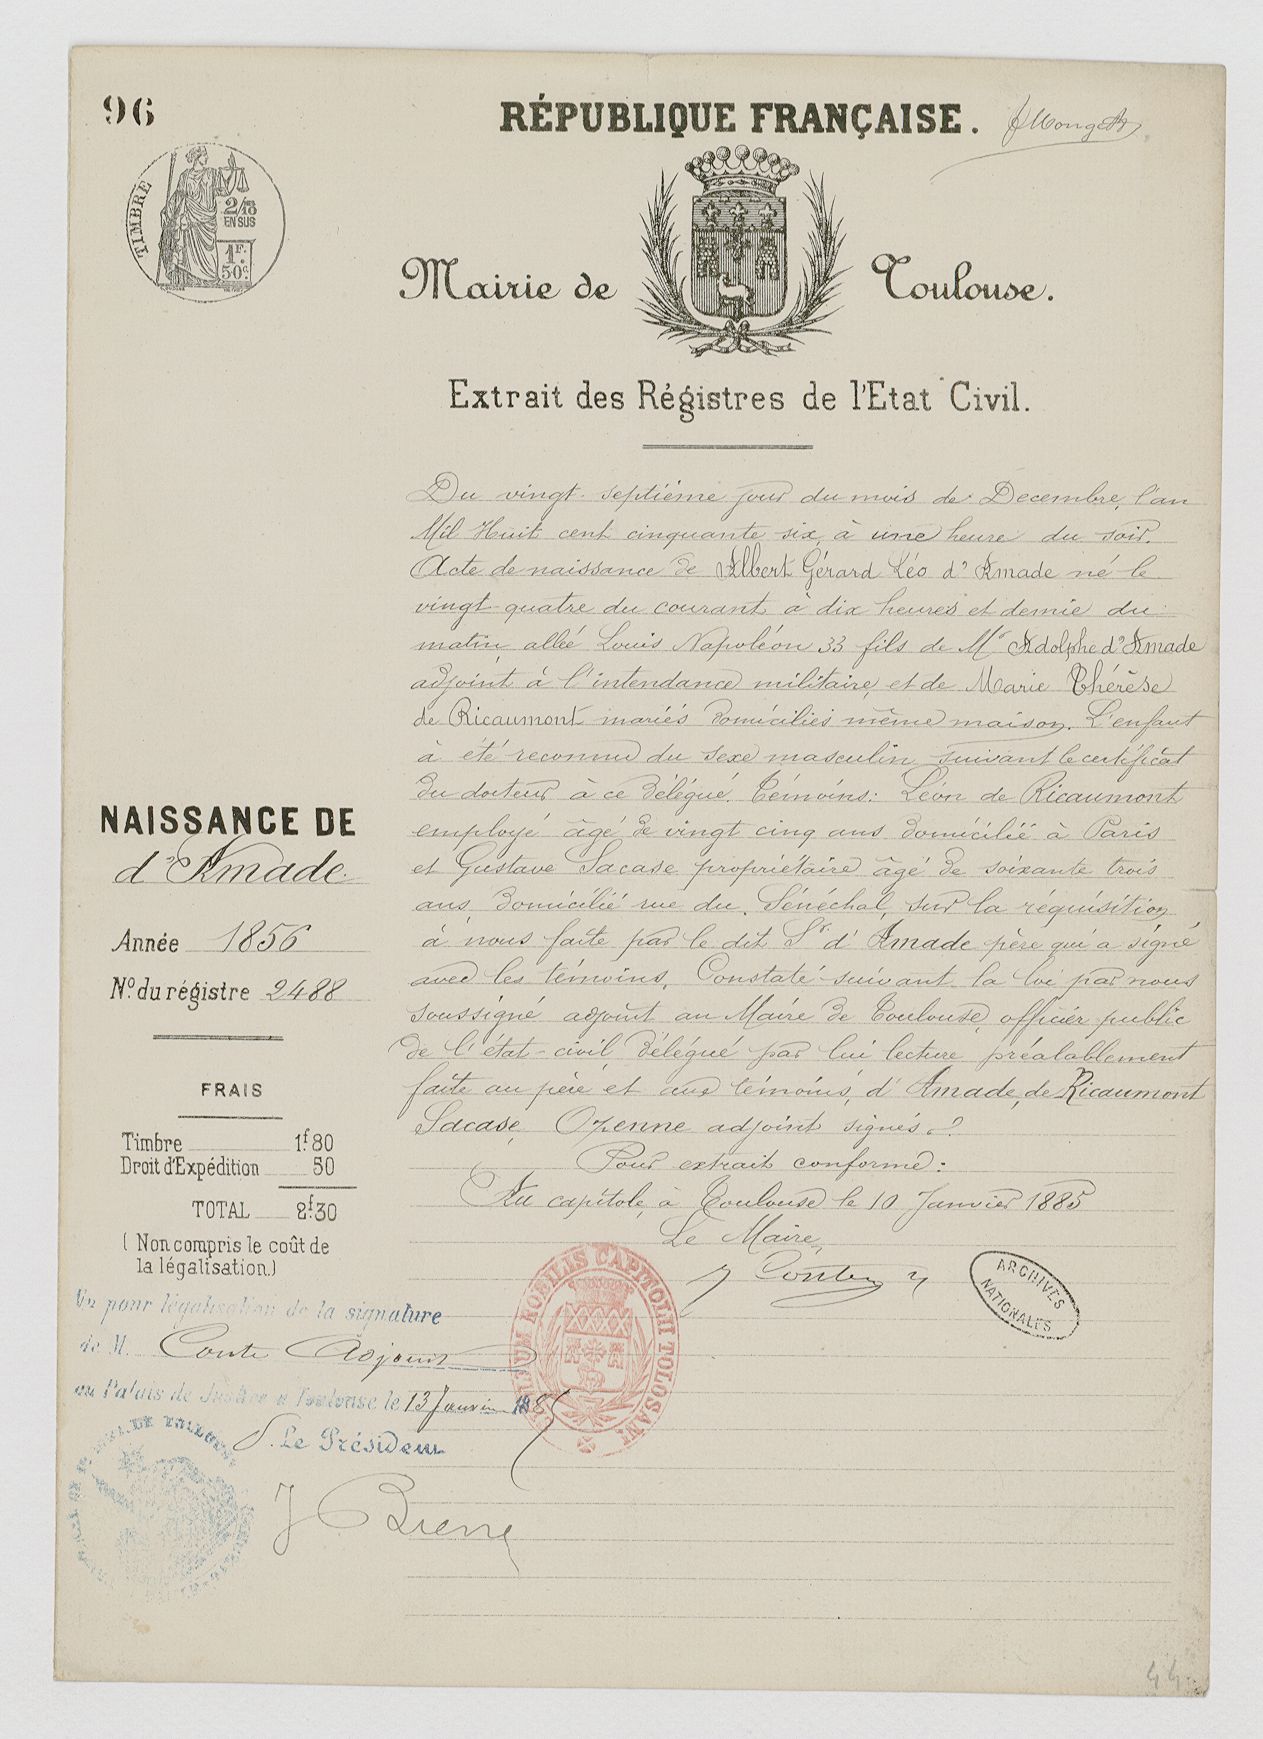 96
RÉPUBLIQUE FRANÇAISE.
TIMBRE
2/10
EN SUS
1F.
50c.
Mairie de Toulouse.
Extrait des Régistres de l'Etat Civil.
Du vingt-septième jour du mois de Decembre, l'an
Mil Huit cent cinquante six, à une heure du soir.
Acte de naissance de Albert Gérard Léo d'Amade né le
vingt-quatre du courant à dix heures et demie du
matin allée Louis Napoléon 33 fils de Mr Adolphe d'Amade
adjoint à l'intendance militaire, et de Marie Thérèse
de Ricaumont mariés domiciliés même maison. L'enfant
à été reconnu du sexe masculin suivant le certificat
du docteur à ce délégué. Témoins: Léon de Ricaumont
employé âgé de vingt cinq ans domicilié à Paris
et Gustave Sacase propriétaire âgé de soixante trois
ans, domicilié rue du Sénéchal, sur la réquisition
à nous faite par le dit Sr d'Amade père qui a signé
avec les témoins. Constaté suivant la loi par nous
soussigné adjoint au Maire de Toulouse, officier public
de l'état-civil délégué par lui lecture préalablement
faite au père et aux témoins, d'Amade, de Ricaumont
Sacase, Ozenne adjoint signés.
Pour extrait conforme:
Au capitole, à Toulouse le 10 Janvier 1885
Le Maire,
NAISSANCE DE
d'Amade.
Année 1856
No. du régistre 2488
FRAIS
Timbre 1f.80
Droit d'Expédition 50
TOTAL 2f.30
( Non compris le coût de
la légalisation.)
Vu pour légalisation de la signature
de M. Conte Adjoint
au Palais de Justice à Toulouse le 13 Janvier 1885
Le Président
CAPITOLII TOLOSANI
ARCHIVES
NATIONALES
44